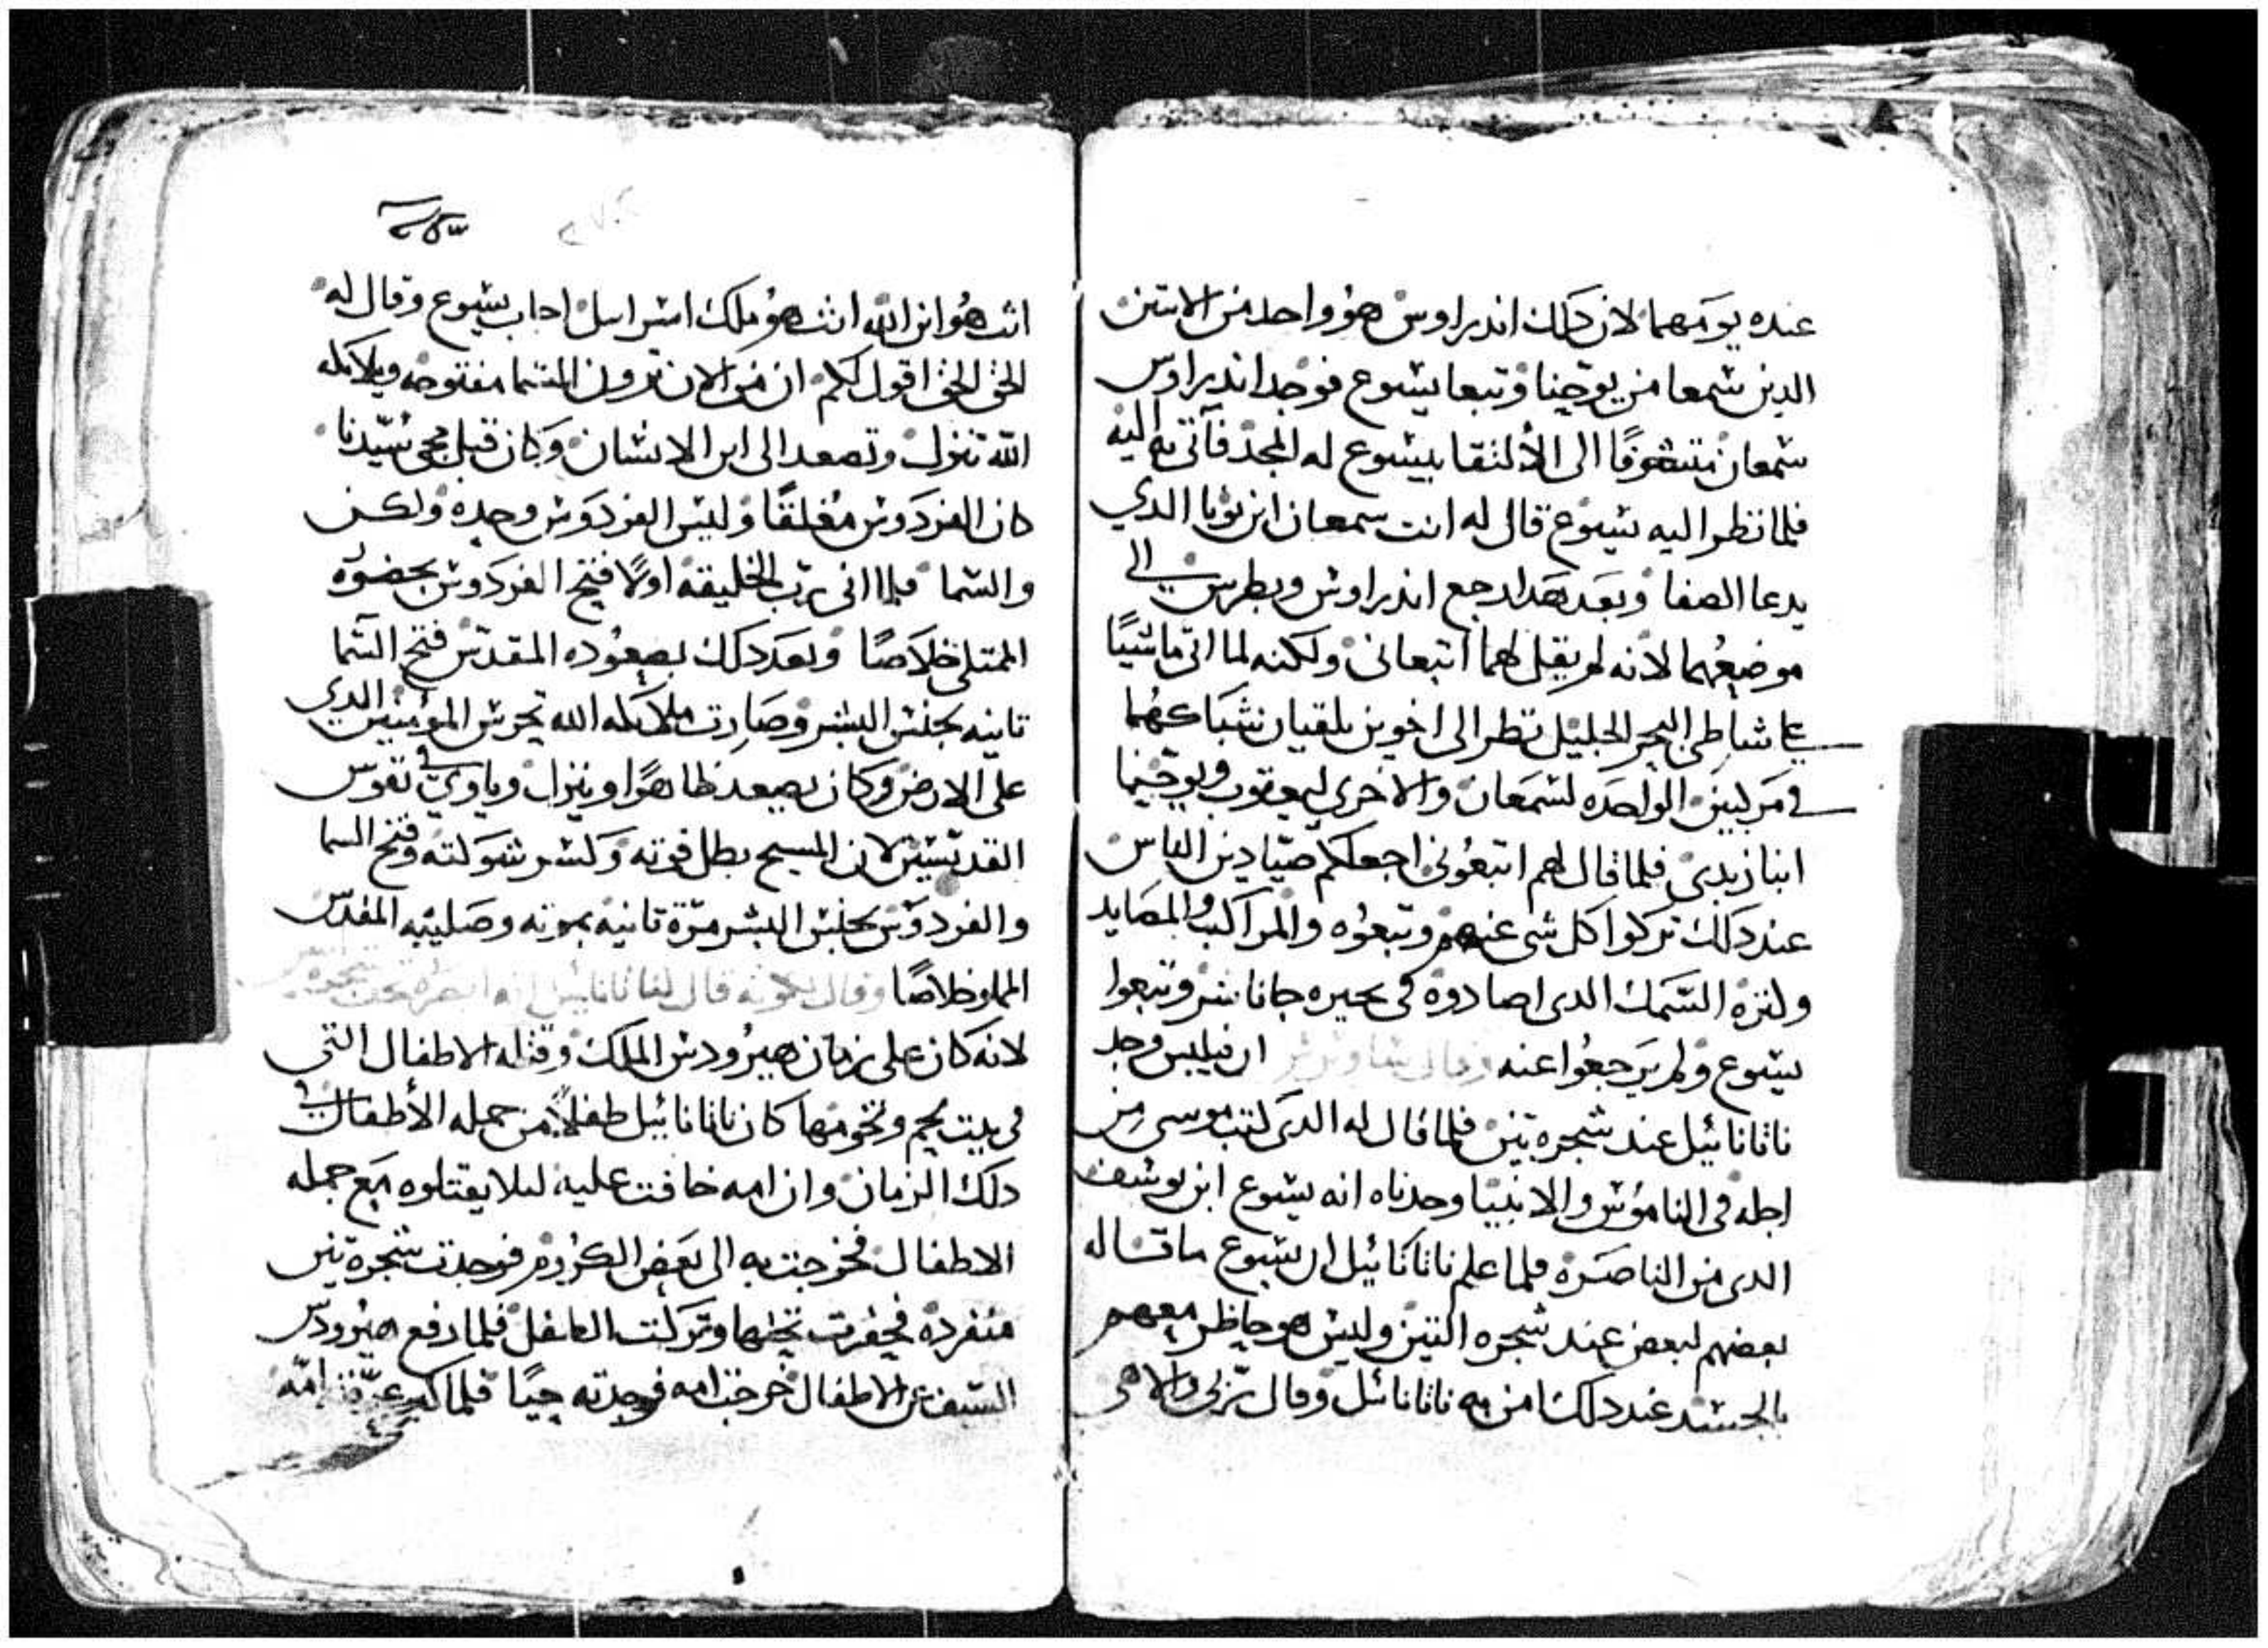 عنده يومهما لان دلك اندراوس هو واحد من الاتنين
الدين سمعا من يوحنا وتبعا يسوع فوجد اندراوس
سمعان متشوقًا الى الألتقا بيسوع له المجد فآتى به اليه
فلما نظر اليه يسوع قال له انت سمعان ابن يونا الدي
يدعا الصفا وبعد هدا رجع اندراوس وبطرس الى
موضعهما لانه لم يقل لهما اتبعانى ولكنه لما اتى ماشيًا
على شاطى البحر الجليل نظر الى اخوين يلقيان شباكهما
في مركبين الواحده لسمعان والاخرى ليعقوب ويوحنا
ابنا زبدى فلما قال لهم اتبعونى اجعلكم صيادين الناس
عند دلك تركوا كل شى عنهم وتبعوه والمراكب والمصايد
وكتره السمك الدى اصادوه فى بحيره جاناشر وتبعوا
يسوع ولم يرجعوا عنه ان فيلبس وجد
ناتانائيل عند شجره تين فلما قال له الدى كتب موسى من
اجله فى الناموس والانبيا وجدناه انه يسوع ابن يوسف
الدى من الناصره فلما علم ناتانائيل ان يسوع ما قاله
بعضهم لبعض عند شجره التين وليس هو حاظر معهم
بالجسد عند دلك امن به ناتانائيل وقال ربى والاهى
انت هو ابن الله انت هو ملك اسراييل اجاب يسوع وقال له
الحق الحق اقول لكم ان من الان ترون السما مفتوحه وملايكه
الله تنزل وتصعد الى ابن الانسان وكان قبل مجى سيدنا
كان الفردوس مغلقًا وليس الفردوس وحده ولكن
والسما فلما اتى رب الخليقه اولًا فتح الفردوس بحضوره
الممتلى خلاصًا وبعد دلك بصعوده المقدس فتح السما
تانيه بجنس البشر وصارت ملايكه الله تحرس المومنين الدي
على الارض وكان يصعد ظاهرًا وينزل وياوي في نفوس
القديسين لان المسيح بطل قوته وكسر شوكته وفتح السما
والفردوس بجنس البشر مرة تانيه بموته وصليبه المقدس
المملو خلاصًا وقال لكونه قال لناتانائيل انه ابصره تحت شجره تين
لانه كان على زمان هيرودس الملك وقتله الاطفال التى
فى بيت لحم وتخومها كان ناتانائيل طفلًا من جمله الأطفال في
دلك الزمان وان امه خافت عليه ليلا يقتلوه مع جمله
الاطفال فخرجت به الى بعض الكروم فوجدت شجرة تين
منفرده فحفرت تحتها وتركت الطفل فلما رفع هيرودس
السيف عن الاطفال خرجت امه فوجدته حيًا فلما كبر عرفته امه